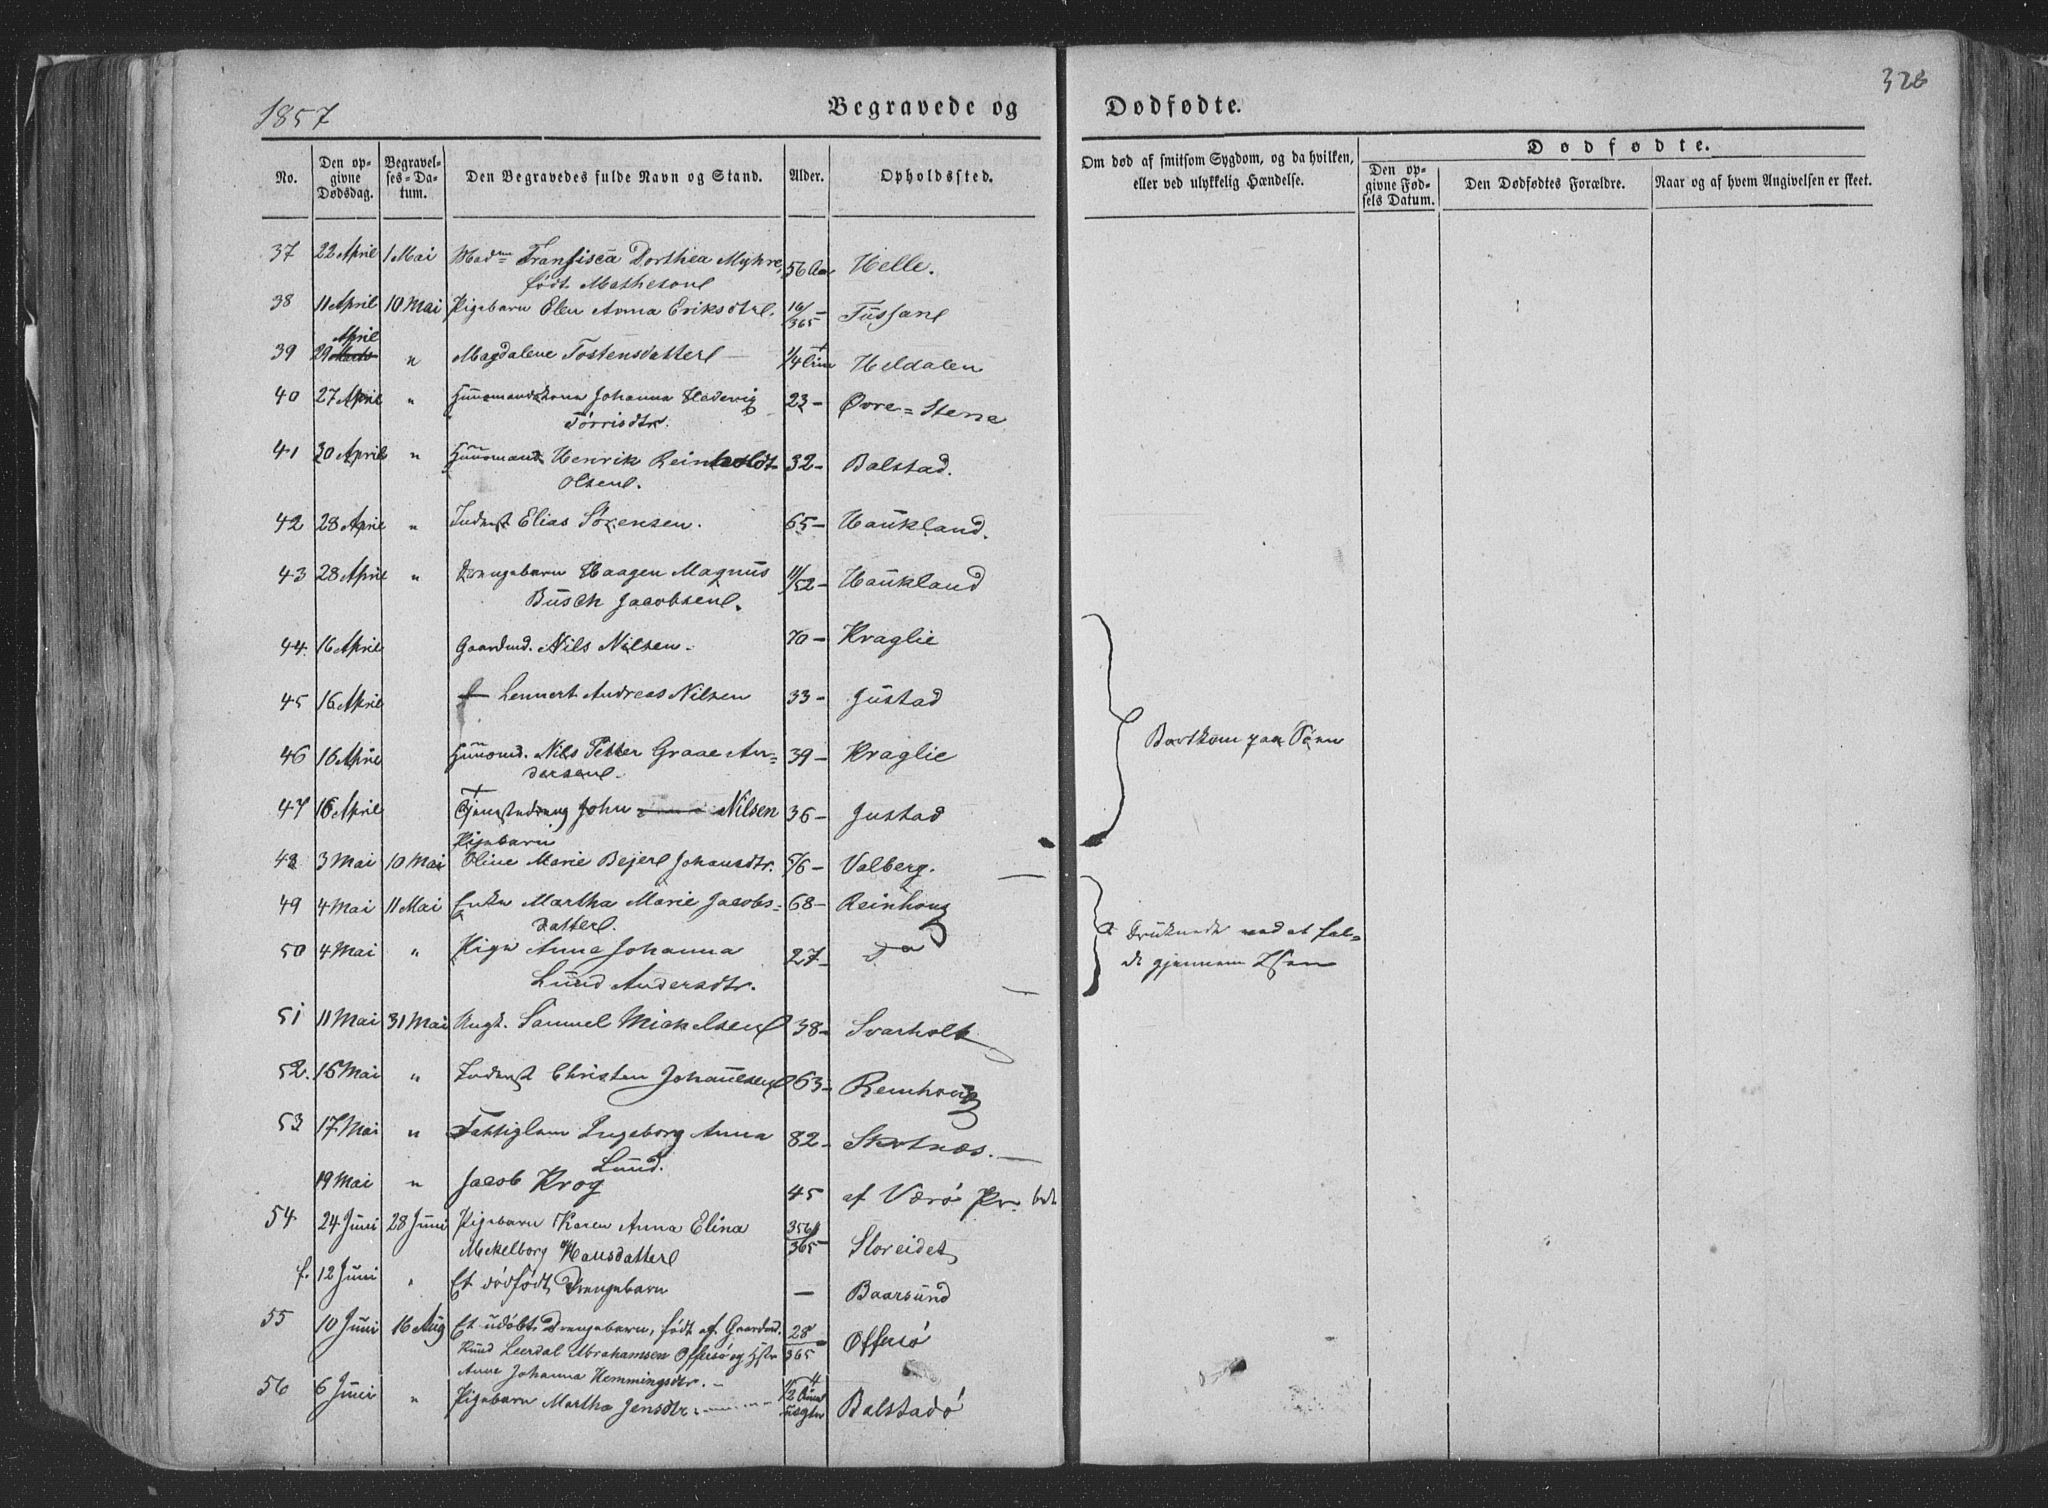 1857
Begravede og Dødfødte.
328
No.
Den opgivne Dødsdag.
Begravelses-Datum.
Den Begravedes fulde Navn og Stand.
Alder.
Opholdssted.
Om død af smitsom Sygdom, og da hvilken, eller ved ulykkelig Hændelse.
Dødfødte.
Den opgivne Fødsels Datum.
Den Dødfødtes Forældre.
Naar og af hvem Angivelsen er skeet.
37 22 April 1 Mai Madme Fransisca Dorthea Myhre, 56 Aar Helle.
født Mathesen
38 11 April 10 Mai Pigebarn Elen Anna Eriksdtr. 10/365 - Tussan
April
39 29 Marts " Magdalene Tostensdatter - 1/4 Heldalen
40 27 April " Huusmandskone Johanna Hedevig 23 - Øvre = Steene
Tørrisdtr.
41 30 April " Huusmand Henrik Reinholdt 32 - Balstad.
Olsen.
42 28 April " Inderst Elias Sørensen. 65 - Haukland.
43 28 April " Drengebarn Haagen Magnus 11/52 - Haukland
Busch Jacobsen.
44. 16 April Gaardmd. Nils Nilsen. 70 - Kraglie
45 16 April Lennert Andreas Nilsen 33 - Gustad
46 16 April Huusmd. Nils Petter Graae An= 39 - Kraglie
dersen.
Bortkom paa Søen
47 16 April Tjenestedreng John Nilsen 36 - Gustad
Pigebarn
48 3 Mai 10 Mai Oline Marie Bejer Johansdtr. 5/6 - Valberg.
49 4 Mai 11 Mai Enke Martha Marie Jacobs= 68 - Reinhoug
datter.
50 4 Mai " Pige Anne Johanna 27 - Do
Lund Andersdtr.
Druknede ved at fal=
de gjennem Isen
51 11 Mai 31 Mai Ungk. Samuel Mickelsen 38 - Svarholt
52. 16 Mai " Inderst Christen Johannesen 63 - Reinhoug
53 17 Mai " Fattiglem Ingeborg Anna 82 - Skotnæs.
Lund.
19 Mai " Jacob Krog 45 af Værø Pr.
54 24 Juni 28 Juni Pigebarn Karen Anna Elina 356/365 - Storeidet
Mekelborg Hansdatter
f. 12 Juni " Et dødfødt Drengebarn - Baarsund
55 10 Juni 16 Aug Et udøbt Drengebarn, født af Gaardmd. 28/365 Offersø
Knud Leerdal Abrahamsen Offersø og Hstr
Anne Johanna Hemmingsdtr. -
56 6 Juni " Pigebarn Martha Jensdtr. 1/2 Balstadø